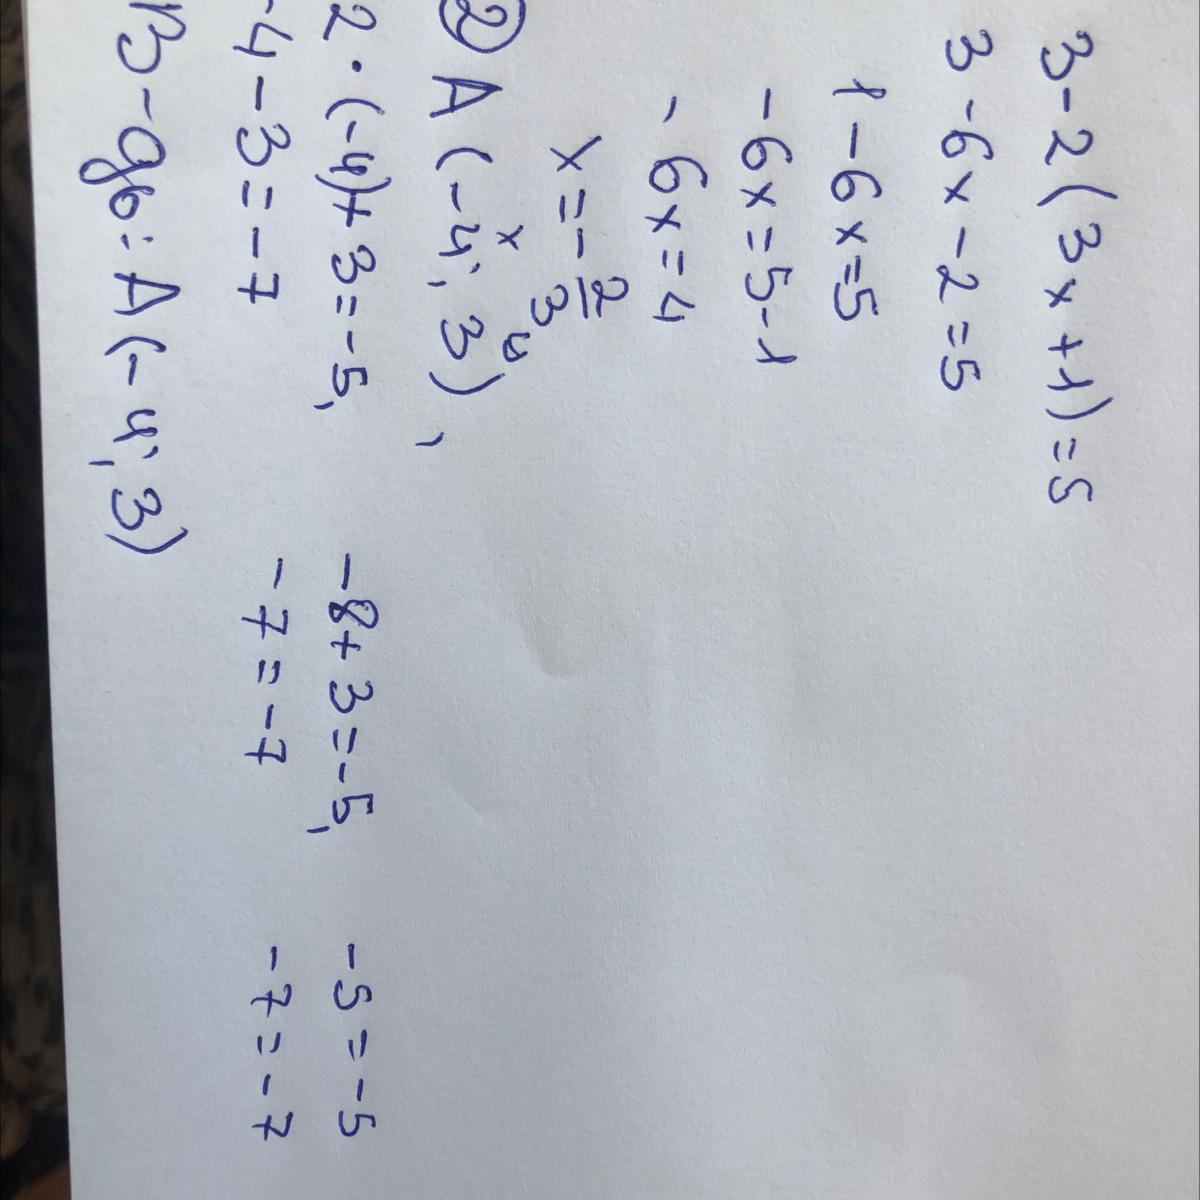 3-2(3x+1)=5
3-6x-2=5
1-6x=5
-6x=5-1
-6x=4
x=-2/3
x y
② A(-4; 3),
2·(-4)+3=-5, -8+3=-5, -5=-5
-4-3=-7 -7=-7 -7=-7
В-дь: A(-4; 3)